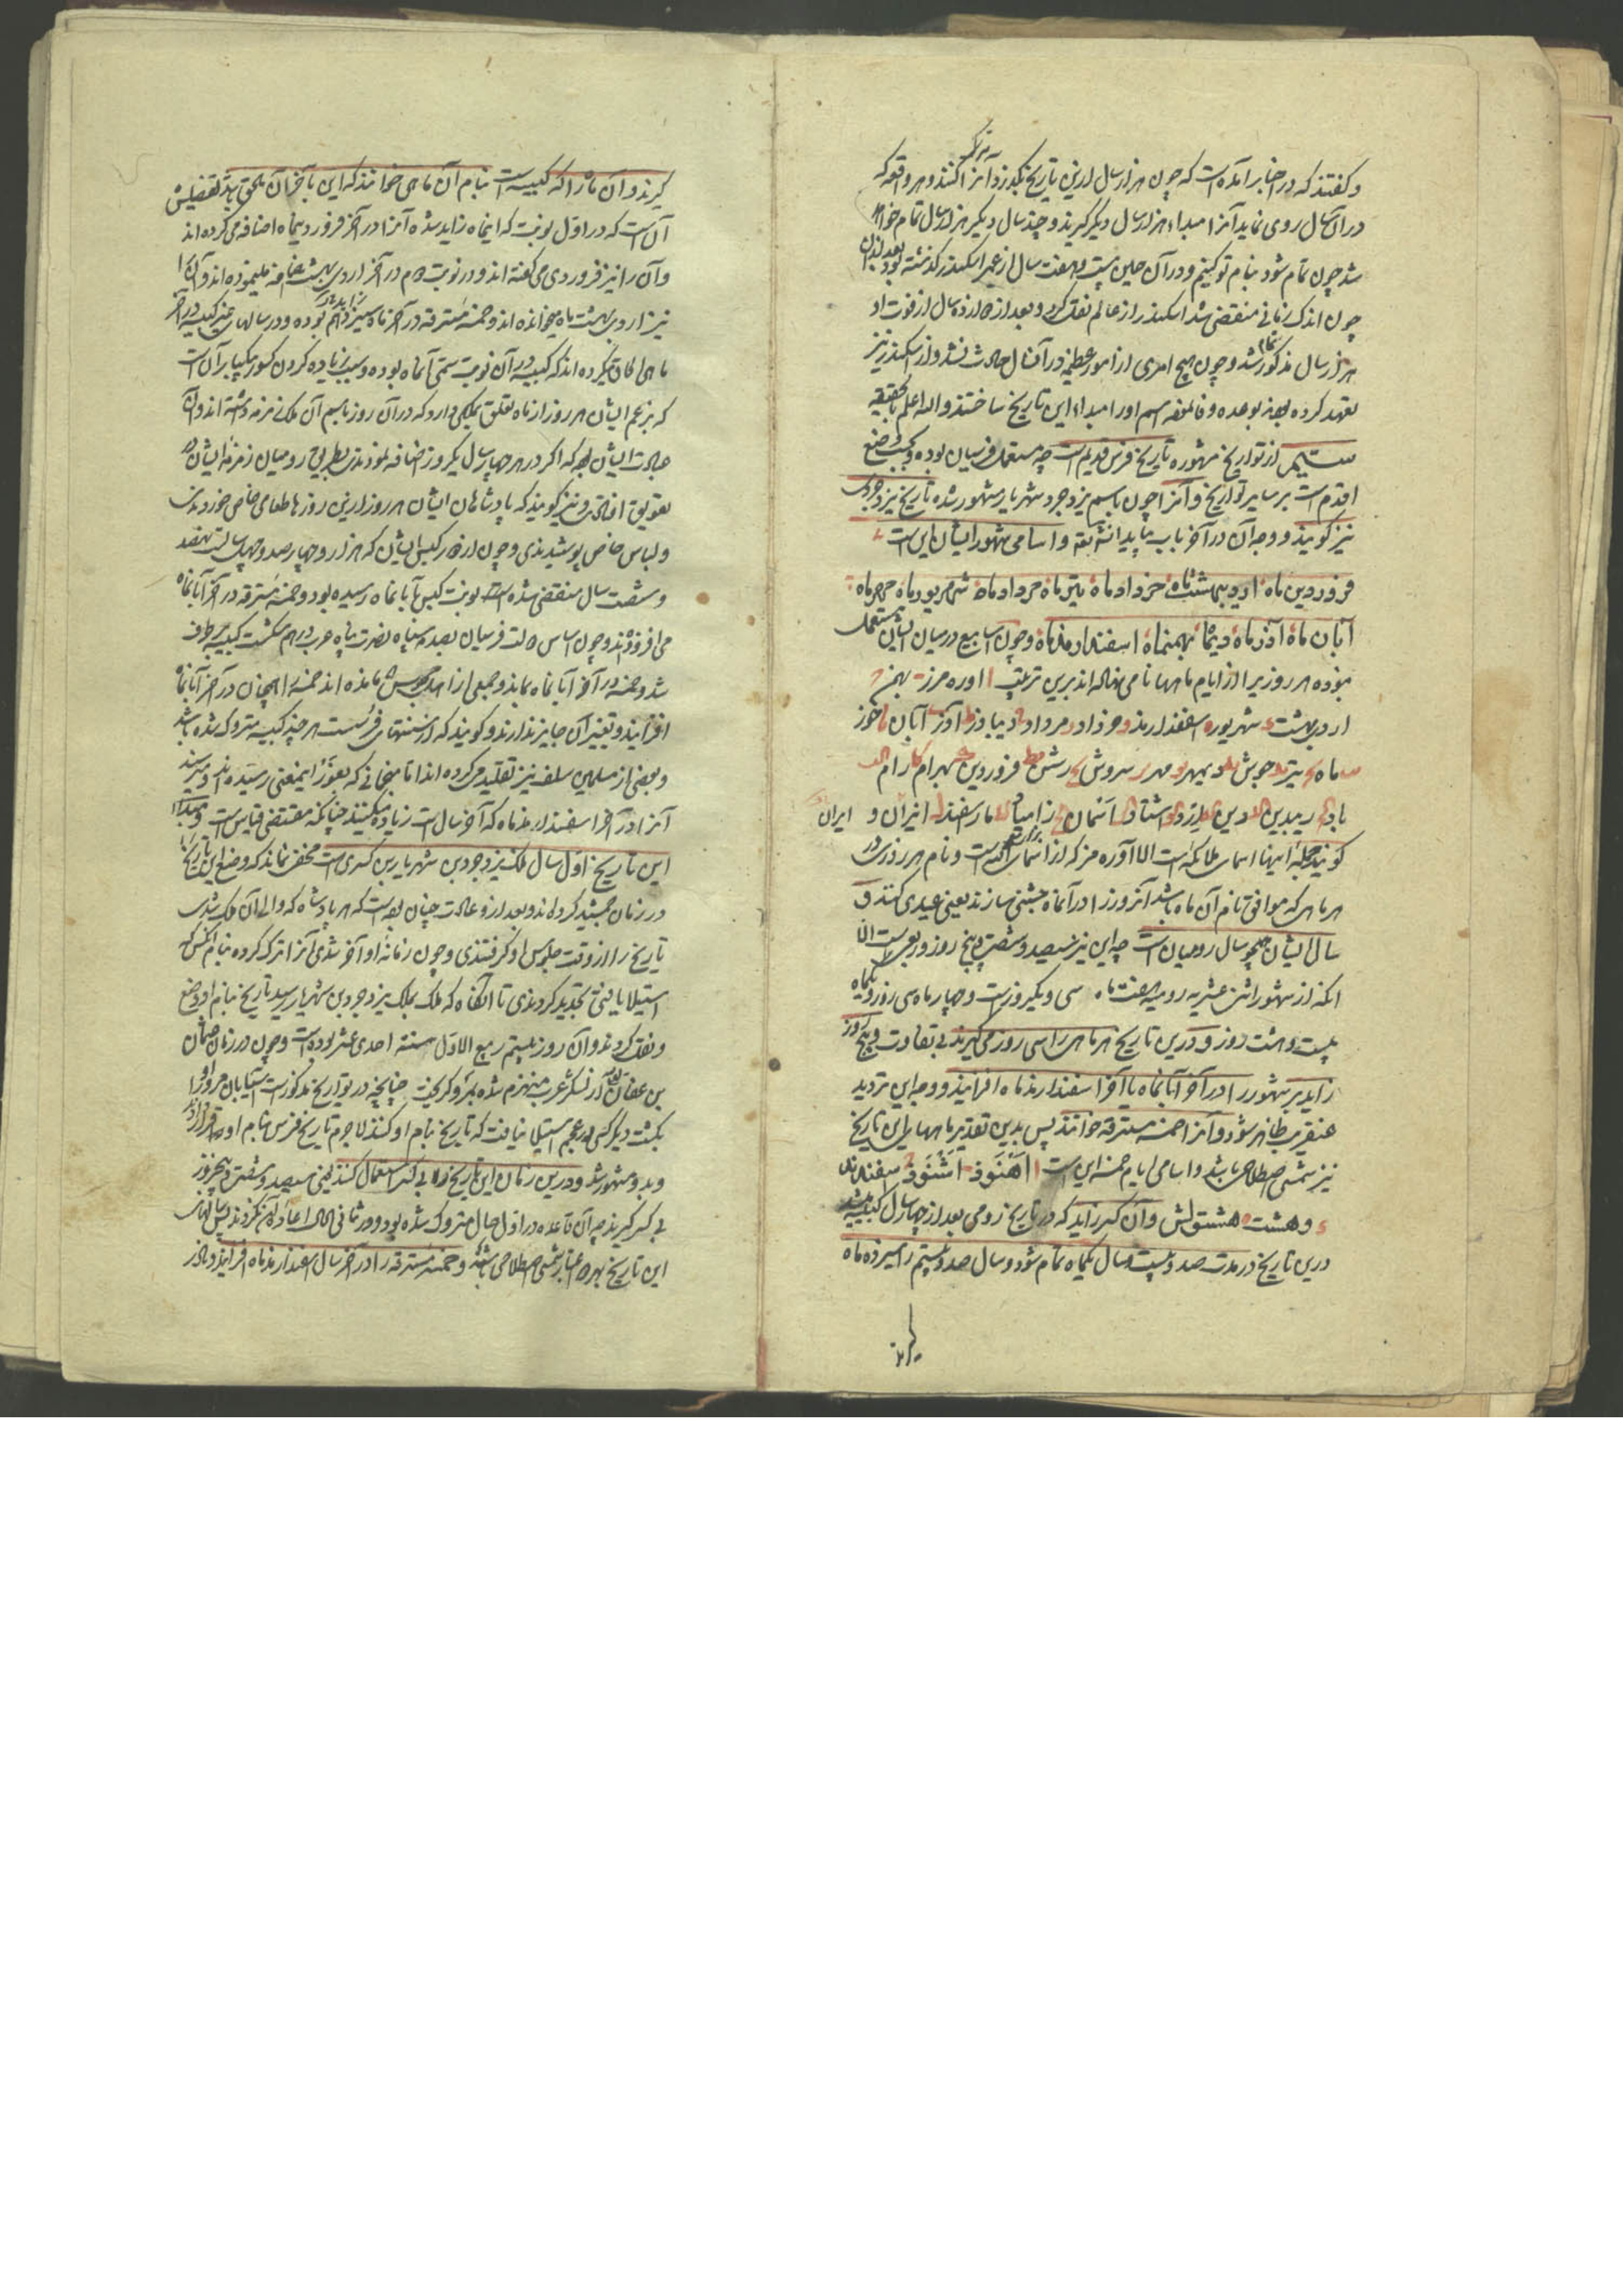 و گفتند که در اخبار آمده است که چون هزار سال ازین تاریخ بگذرد آنرا ترک کنند و هر واقعه که
در آن سال روی نماید آنرا مبداء هزار سال دیگر گیرند و چند سال دیگر هزار سال تمام خواهد
شد چون تمام شود بنام تو کنیم و در آن حین بیست و هفت سال از عمر اسکندر گذشته بود بعد از آن
چون اندک زمانی منقضی شد اسکندر از عالم نقل کرد و بعد از دوازده سال از فوت او
هزار سال مذکور تمام شد و چون هیچ امری از امور عظیمه در آنسال حادث نشد و از اسکندر نیز
تعهد کرده بودند بوعده وفا نموده اسم او را مبداء این تاریخ ساختند والله اعلم بالحقیقه
سیم از تواریخ مشهوره تاریخ فرس قدیم است چه مستعمل فرسیان بوده و بحسب وضع
اقدم است بر سایر تواریخ و آنرا چون باسم یزدجرد شهریار مشهور شده تاریخ یزدجردی
نیز گویند و وجه آن در آخر باب بیاید انشاءالله و اسامی شهور ایشان این است
فروردین ماه اردیبهشت ماه خرداد ماه تیر ماه مرداد ماه شهریور ماه مهر ماه
آبان ماه آذر ماه دیماه بهمنماه اسفندارمذ ماه و چون اسابیع در میان ایشان مستعمل
نبوده هر روزیرا از ایام ماهها نامی نهاده اند برین ترتیب ا اورمزد ب بهمن ج
اردیبهشت د شهریور ه اسفندارمذ و خرداد ز مرداد ح دیباذر ط آذر ی آبان یا خور
یب ماه یج تیر ید جوش یه دیبمهر یو مهر یز سروش یح رشن یط فروردین ک بهرام کا رام کب
باد کج دیبدین کد دین کو اشتاد کز آسمان کح زامیاد کط ماراسفند ل انیران و ایران
گویند جمله اینها اسماء ملائکه است الا اورمزد که از اسماء الله است و نام هر روزی در
هر ماهی که موافق نام آن ماه باشد آنروز را در آنماه جشنی سازند یعنی عیدی کنند و
سال ایشان همچو سال رومیان است چه این نیز سیصد و شصت و پنج روز و ربعی است الا
آنکه از شهور اثنی عشریه رومیه هفت ماه سی و یکروز است و چهار ماه سی روز و یکماه
بیست و هشت روز و درین تاریخ هر ماهی را سی روز می گیرند بی تفاوت و پنج روز
زاید بر شهور را در آخر آبانماه یا آخر اسفندارمذ ماه افزایند و وجه این تردید
عنقریب ظاهر شود و آنرا خمسه مسترقه خوانند پس بدین تقدیر ماهها این تاریخ
نیز شمسی اصطلاحی باشد و اسامی ایام خمسه این است ا اهنود ب اشنود ج سفندمد
د وهشت ه هشتوش و آن کسر زاید که در تاریخ رومی بعد از چهار سال کبیسه میشد
درین تاریخ در مدت صد و بیست سال یکماه تمام شود و سال صد و بیستم را سیزده ماه
گیرند
گیرند و آن ماه را که کبیسه است بنام آن ماهی خوانند که این بآخر آن ملحق باشد تفصیلش
آن است که در اول نوبت که اینماه زاید شده آنرا در آخر فروردینماه اضافه می کرده اند
و آن را نیز فروردی می گفته اند و در نوبت دوم در آخر اردیبهشت اضافه مینموده اند و آن را
نیز اردیبهشت ماه میخوانده اند و خمسه مسترقه در آخر ماه سیزدهم زاید بوده و در سالهای غیر کبیسه در آخر
ماهی الحاق میکرده اند که کبیسه در آن نوبت سمی آنماه بوده و سبب زیاده کردن کسور یکبار آن است
که بزعم ایشان هر روز از ماه تعلق بملکی دارد که در آن روز باسم آن ملک زمزمه داشته اند و آن
عبادت ایشان بود که اگر در هر چهار سال یکروز اضافه نمودندی بطریق رومیان زمزمه ایشان در
تعویق افتادی و نیز گویند که پادشاهان ایشان هر روز ازین روزها طعامی خاص خوردندی
و لباس خاص پوشیدندی و چون از دور کبس ایشان که هزار و چهارصد و چهل سال است نهصد
و شصت سال منقضی شده است نوبت کبس بآبانماه رسیده بود و خمسه مسترقه در آخر آبانماه
می افزودند و چون اساس دولت فرسیان بصدمه سپاه نصرت پناه عرب در هم شکست کبیسه برطرف
شد و خمسه در آخر آبانماه بماند و جمعی از اهل مجوس مانده اند خمسه را همچنان در آخر آبانماه
افزایند و تغییر آن جایز ندارند و گویند که از سنتهای فرس است هر چند کبیسه متروک شده باشد
و بعضی از مسلمین سلف نیز تقلید می کرده اند اما منجمانی که بغور اینمعنی رسیده اند و میرسند
آنرا در آخر اسفندارمذماه که آخر سال است زیاده میکنند چنانکه مقتضی قیاس است و مبداء
این تاریخ اول سال ملک یزدجرد بن شهریار بن کسری است مخفی نماند که وضع این تاریخ
در زمان جمشید کرده اند و بعد از او عادت چنان بوده است که هر پادشاه که والی آن ملک شدی
تاریخ را از وقت جلوس او گرفتندی و چون زمانه او آخر شدی آنرا ترک کرده بنام آنکس که
استیلا یافتی تجدید کردندی تا آنگاه که ملک بملک یزدجرد بن شهریار رسید تاریخ بنام او وضع
و نقل کردند و آن روز بیستم ربیع الاول سنه احدی عشر بوده است و چون در زمان عثمان
بن عفان از لشکر عرب منهزم شده بمرو گریخت چنانچه در تواریخ مذکور است آسیابان مرو او را
بکشت دیگر کسی در عجم استیلا نیافت که تاریخ بنام او کنند لاجرم تاریخ فرس بنام او قرار گرفت
و بدو مشهور شد و درین زمان این تاریخ را بی کسر استعمال کنند یعنی سیصد و شصت و پنجروز
بی کسر گیرند چه آن قاعده در اول حال متروک شده بود و در ثانی الحال اعاده آن نکردند پس سالهای
این تاریخ بهر دو اعتبار شمسی اصطلاحی باشد و خمسه مسترقه را در آخر سال اسفندارمذماه افزایند